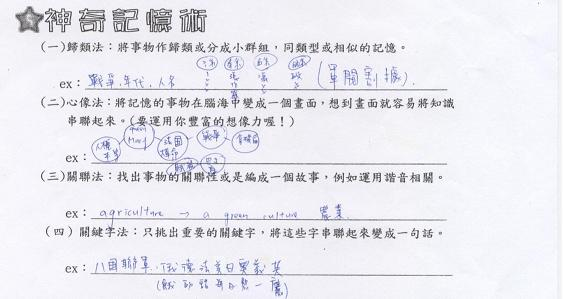 神奇記憶術
(一)歸類法：將事物作歸類或分成小群組，同類型或相似的記憶。
ex：戰爭、年代、人名 (軍閥割據)
(二)心像法：將記憶的事物在腦海中變成一個畫面，想到畫面就容易將知識
串聯起來。(要運用你豐富的想像力喔！)
ex：
(三)關聯法：找出事物的關聯性或是編成一個故事，例如運用諧音相關。
ex：agriculture → a green culture 農業
(四) 關鍵字法：只挑出重要的關鍵字，將這些字串聯起來變成一句話。
ex：八國聯軍：俄德法美日奧義英
(餓的話每日熬一鷹)